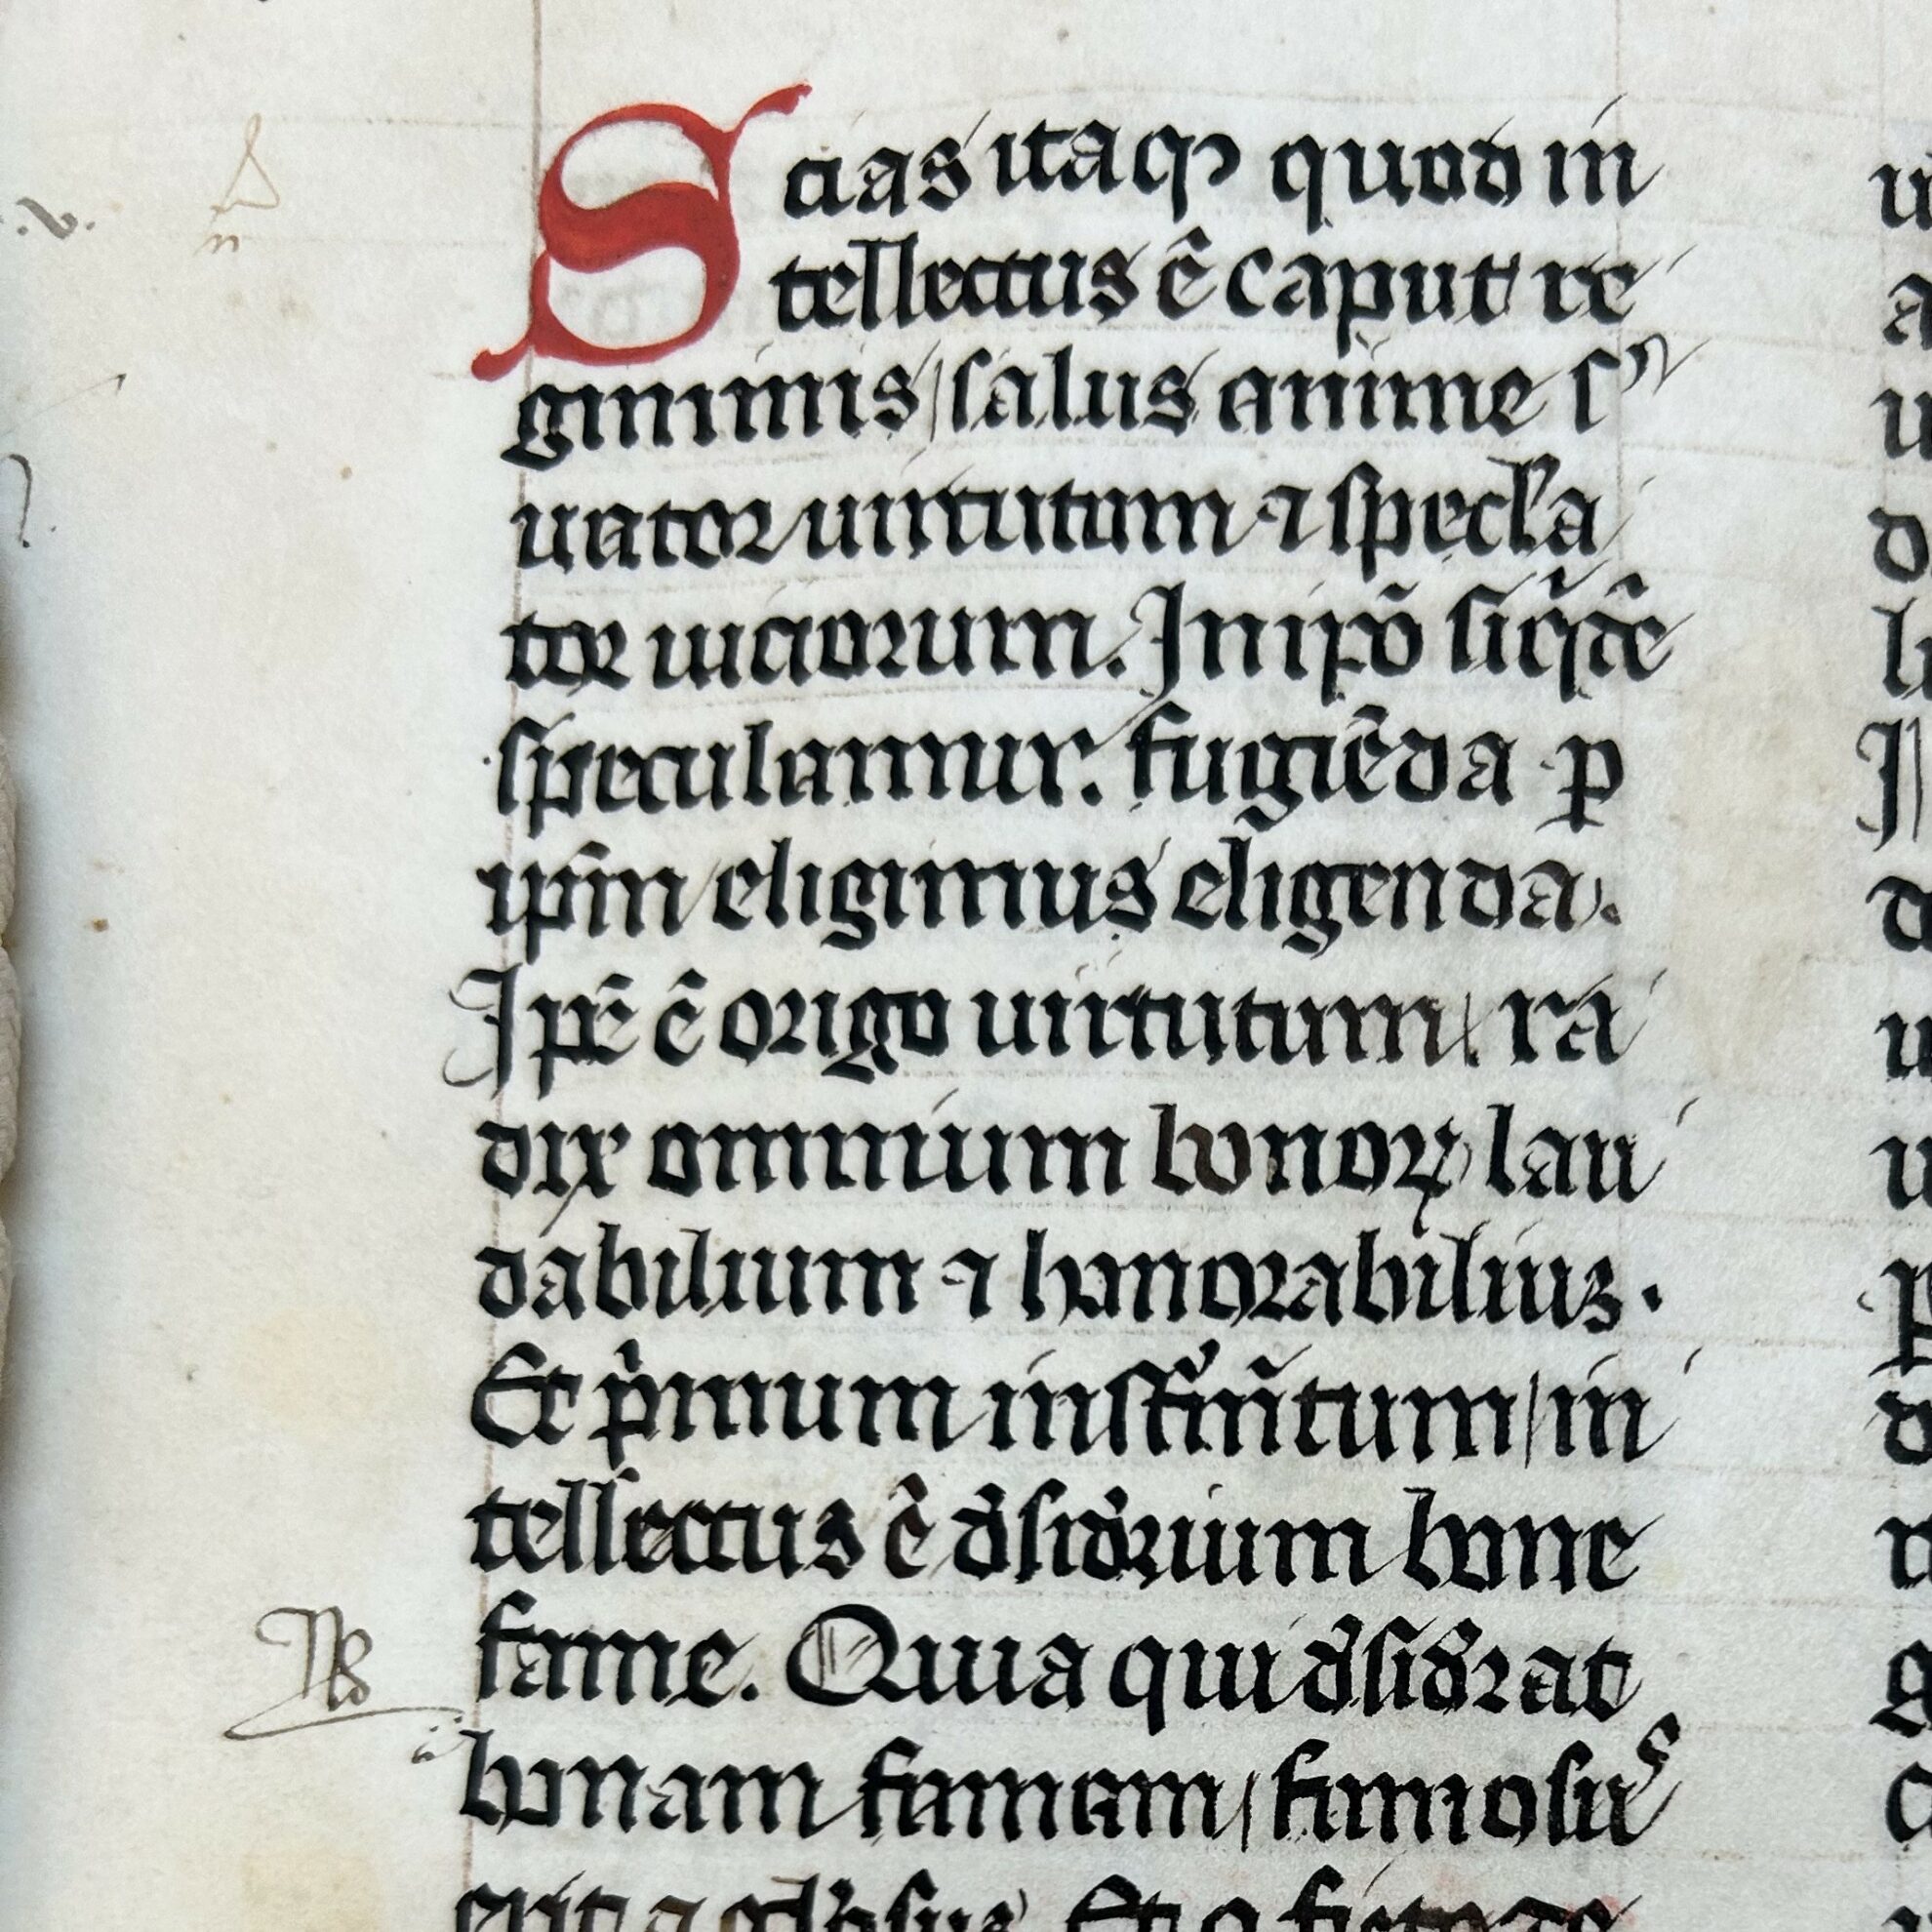 Scias itaqꝫ quod in
tellectus ē caput re
giminis/ salus anime sʾ
uator uirtutum ⁊ specl̓a
tor uiciorum. In ip̄o siq̄dē
speculamur. fugiēda ꝑ
ip̄m eligimus eligenda.
Ip̄e ē origo uirtutum/ ra
dix omnium bonoꝝ lau
dabilium ⁊ honorabiliuʒ.
Et pⁱmum instr̓um̄tum/ in
tellectus ē d̓sid̓rium bone
fame. Quia qui d̓sid̓rat
bonam famam/ famosus